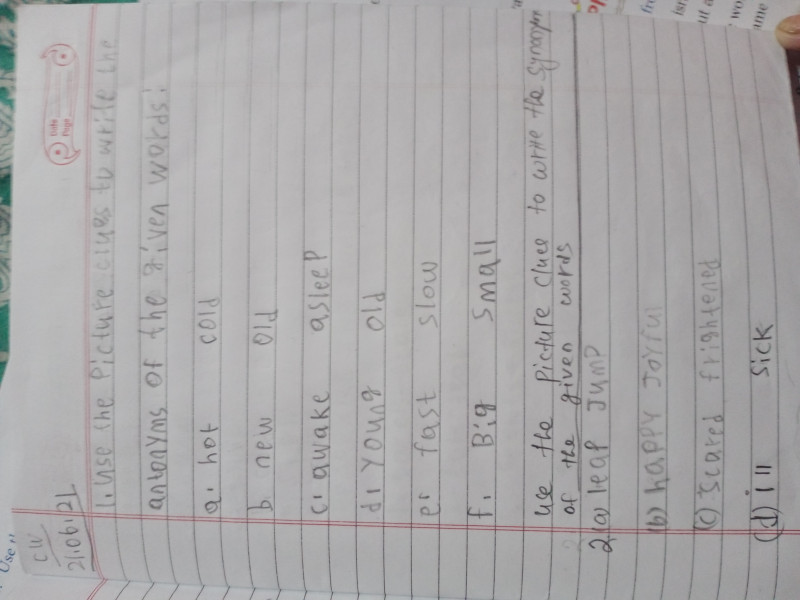 CW
21.06.21
Date
Page
1. Use the Picture clues to write the
antonyms of the given words.
a. hot cold
b. new old
c. awake asleep
d. Young old
e. fast slow
f. Big small
Use the picture cluce to write the synonym
of the given words
2. (a) leap Jump
(b) happy Joyful
(c) scared frightened
(d) ill sick
Use